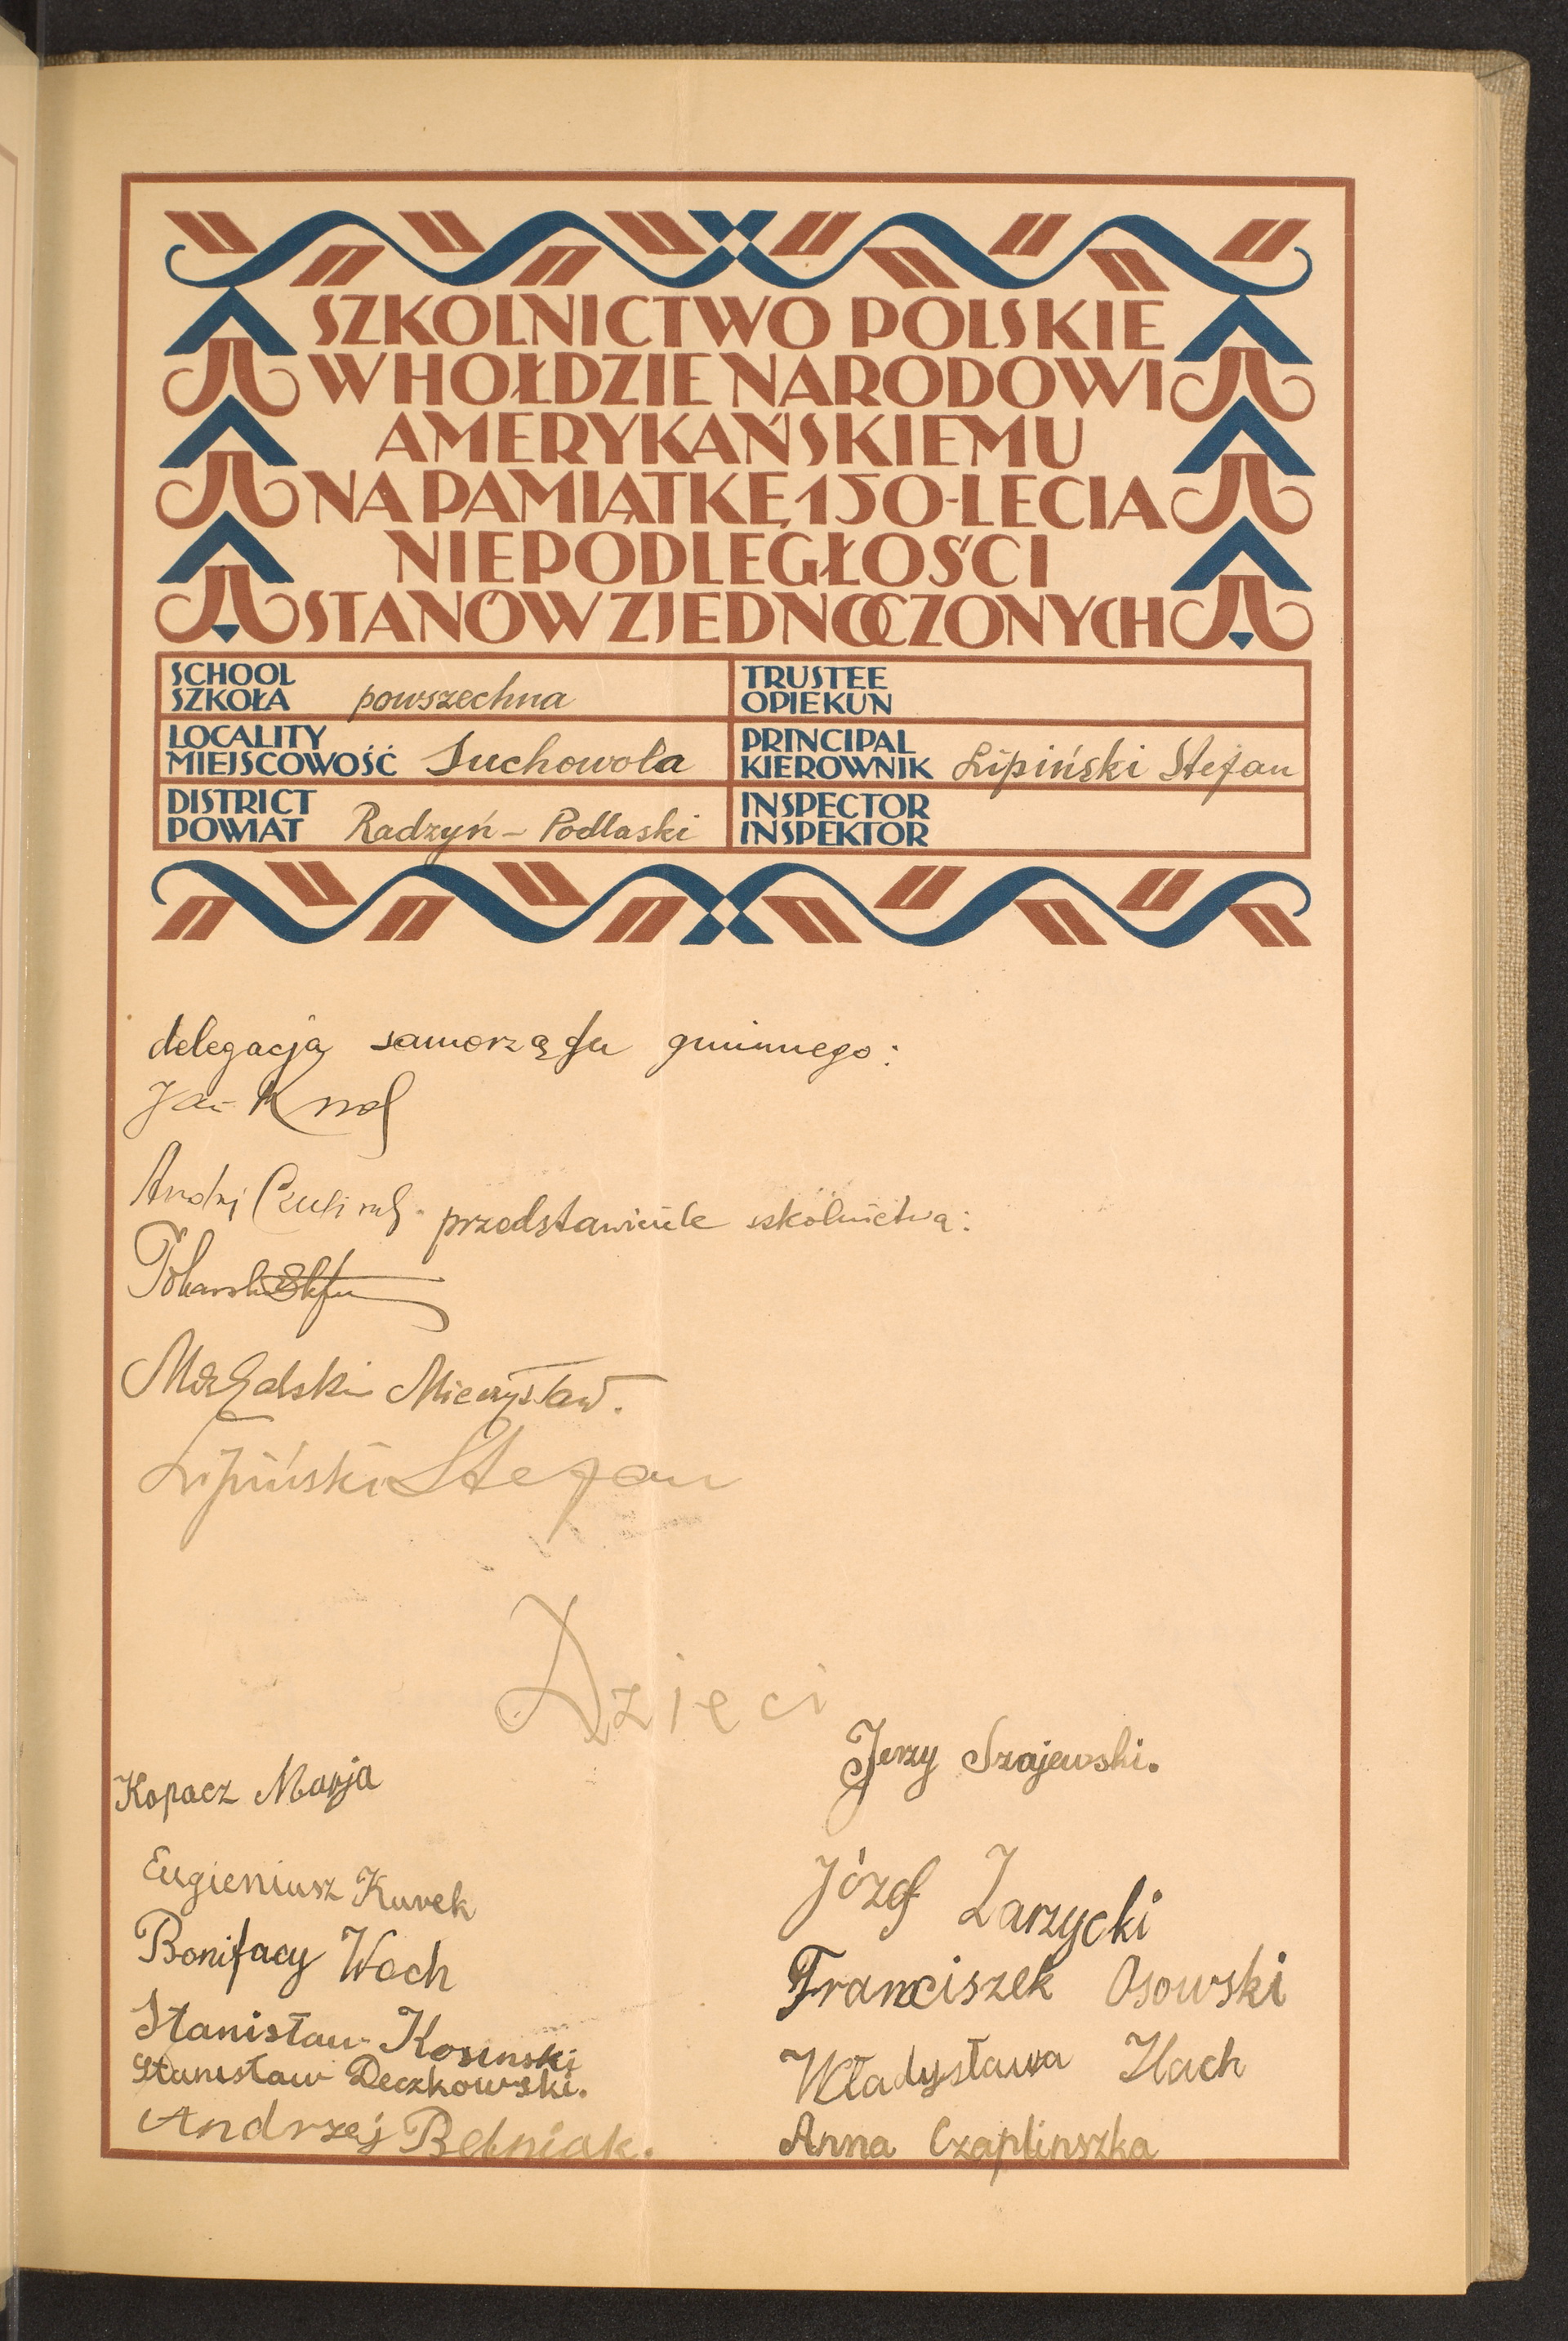 SZKOLNICTWO POLSKIE
W HOŁDZIE NARODOWI
AMERYKAŃSKIEMU
NA PAMIĄTKĘ 150-LECIA
NIEPODLEGŁOŚCI
STANÓW ZJEDNOCZONYCH
SCHOOL
SZKOŁA powszechna
TRUSTEE
OPIEKUN
LOCALITY
MIEJSCOWOŚĆ Suchowola
PRINCIPAL
KIEROWNIK Lipiński Stefan
DISTRICT
POWIAT Radzyń - Podlaski
INSPECTOR
INSPEKTOR
delegacja samorządu gminnego:
Jan
Andrzej
przedstawiciele szkolnictwa:
Mieczysław.
Lipiński Stefan
Dzieci
Kopacz Marja
Eugieniusz Kurek
Bonifacy Woch
Stanisław Kosinski
Stanisław Deczkowski.
Andrzej Bebniak.
Jerzy Szajewski.
Józef Zarzycki
Franciszek Osowski
Władysława Ilach
Anna Czaplinszka